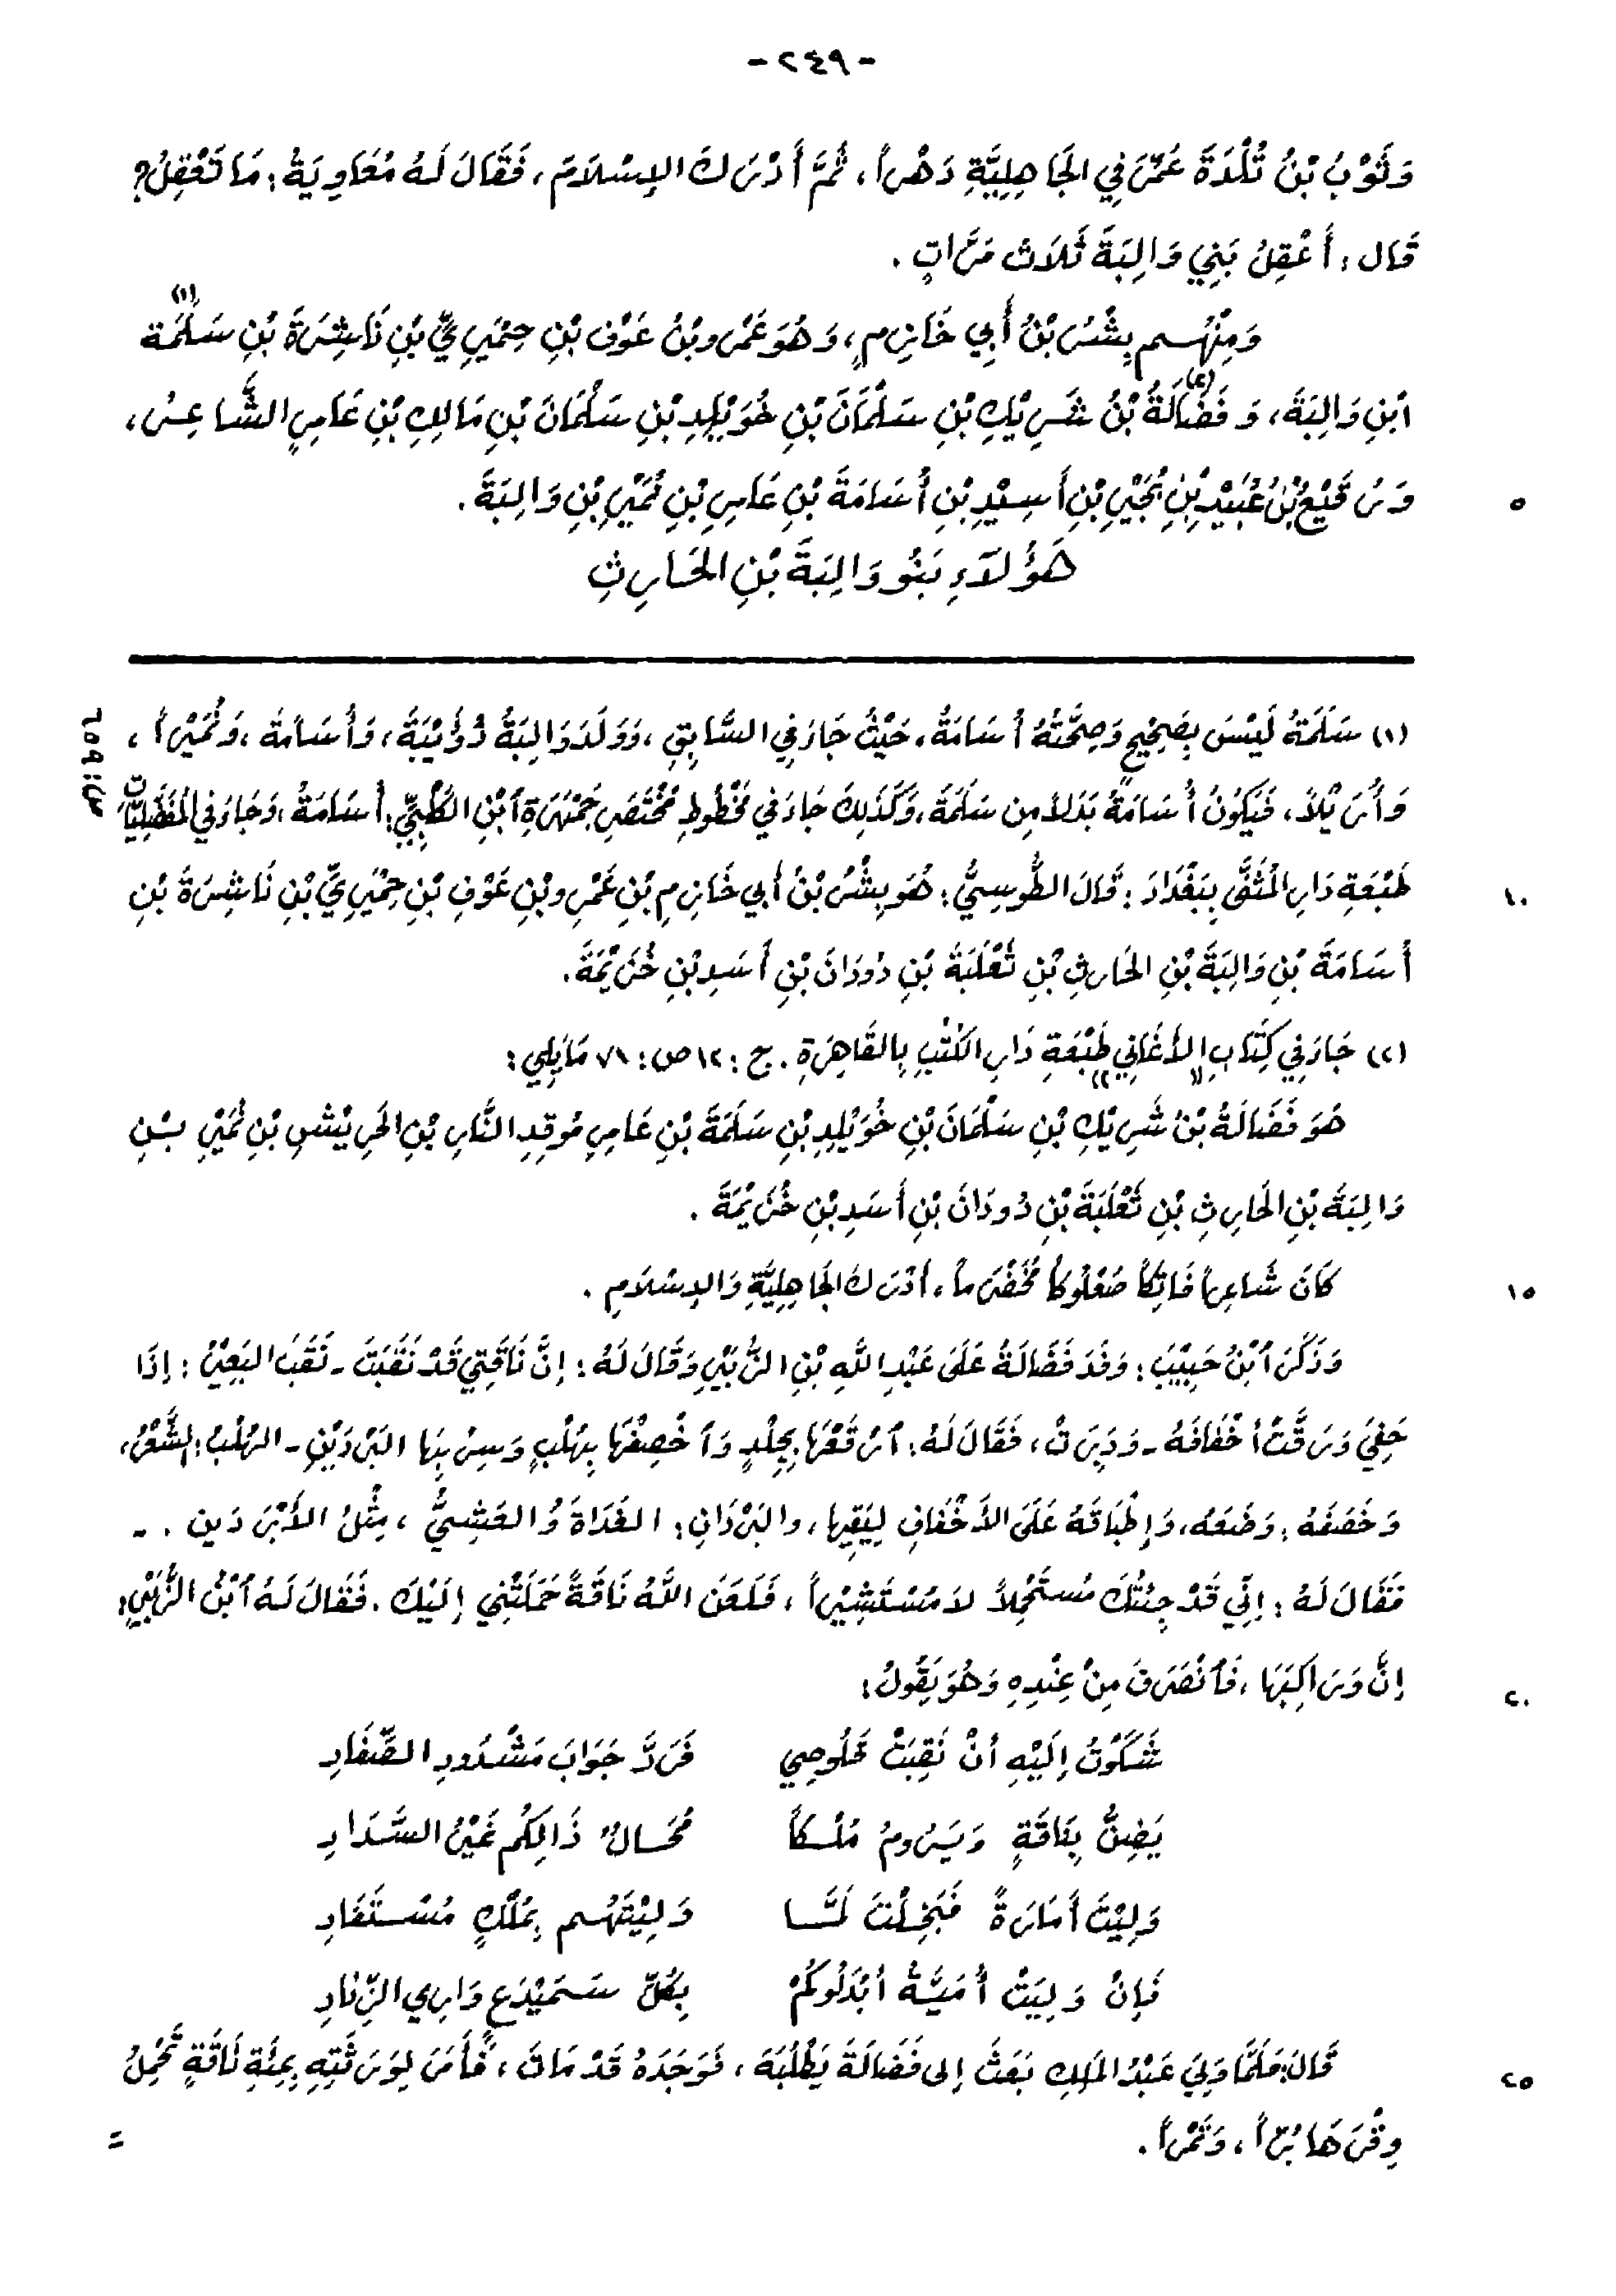 - ٢٤٩ -
وَثَوْبُ بْنُ تُلْدَةَ عَمَّرَ فِي الجَاهِلِيَّةِ دَهْراً، ثُمَّ أَدْرَكَ الإسْلاَمَ، فَقَالَ لَهُ مُعَاوِيَةُ: مَا تَعْقِلُ؟
قَال: أَعْقِلُ بَنِي وَالِبَةَ ثَلاَثَ مَرَّاتٍ.
وَمِنْهُم بِشْرُ بْنُ أَبِي خَازِمٍ، وَهُوَ عَمْرو بْنُ عَوْفِ بْنِ حِمْيَرِيِّ بْنِ نَاشِرَةَ بْنِ سَلَمَة (١)
ابْنِ وَالِبَةَ، وَفَضَالَةُ (٢) بْنُ شَرِيْكِ بْنِ سَلْمَانَ بْنِ خُوَيْلِدِ بْنِ سَلْمَانَ بْنِ مَالِكِ بْنِ عَامِرٍ الشَّاعِرُ،
وَرُقَيْعُ بْنُ عُبَيْدِ بْنِ بُجَيْرِ بْنِ أَسِيْدِ بْنِ أُسَامَةَ بْنِ عَامِرِ بْنِ نُمَيْرِ بْنِ وَالِبَةَ.
٥
هَؤُلاَءِ بَنُو وَالِبَةَ بْنِ الحَارِثِ
(١) سَلَمَةُ لَيْسَ بِصَحِيْحٍ وَصِحَّتُهُ أُسَامَةُ، حَيْثُ جَاءَ فِي السَّابِقِ، وَوَلَدَ وَالِبَةُ ذُؤَيْبَةَ، وَأُسَامَةَ، وَنُمَيْراً،
ص: ٦٥٩
وَأُرَيْلاً، فَيَكُونُ أُسَامَةُ بَدَلاً مِن سَلَمَةَ، وَكَذَلِكَ جَاءَ فِي مَخْطُوطِ مُخْتَصَرِ جَمْهَرَةِ ابْنِ الكَلْبِيِّ: أُسَامَةُ، وَجَاءَ فِي المُفَضَّلِيَّات
طَبْعَةِ دَارِ المُثَنَّى بِبَغْدَادَ: قَالَ الطُّوسِيُّ: هُوَ بِشْرُ بْنُ أَبِي خَازِمِ بْنِ عَمْرِو بْنِ عَوْفِ بْنِ حِمْيَرِيِّ بْنِ نَاشِرَةَ بْنِ
١٠
أُسَامَةَ بْنِ وَالِبَةَ بْنِ الحَارِثِ بْنِ ثَعْلَبَةَ بْنِ دُودَانَ بْنِ أَسَدِ بْنِ خُزَيْمَةَ.
(٢) جَاءَ فِي كِتَابِ «الأَغَانِي» طَبْعَةِ دَارِ الكُتُبِ بِالقَاهِرَةِ. ج: ١٢ ص: ٧١ مَايَلِي:
هُوَ فَضَالَةُ بْنُ شَرِيْكِ بْنِ سَلْمَانَ بْنِ خُوَيْلِدِ بْنِ سَلَمَةَ بْنِ عَامِرِ مُوقِدِ النَّارِ بْنِ الحَرِيْشِ بْنِ نُمَيْرِ بْنِ
وَالِبَةَ بْنِ الحَارِثِ بْنِ ثَعْلَبَةَ بْنِ دُودَانَ بْنِ أَسَدِ بْنِ خُزَيْمَةَ.
كَانَ شَاعِراً فَاتِكاً صُعْلُوكاً مُخَضْرَماً، أَدْرَكَ الجَاهِلِيَّةِ وَالإِسْلاَمِ.
١٥
وَذَكَرَ ابْنُ حَبِيْبَ: وَفَدَ فَضَالَةُ عَلَى عَبْدِ اللَّهِ بْنِ الزُّبَيْرِ وَقَالَ لَهُ: إنَّ نَاقَتِي قَدْ نَقَبَتْ - نَقَبَ البَعِيْرُ: إذَا
حَفِيَ وَرَقَّتْ أَخْفَافَهُ - وَدَبِرَتْ، فَقَالَ لَهُ: ارْقَعْهَا بِجِلْدٍ وَاخْصِفْهَا بِهُلْبٍ وَسِرْ بِهَا البَرْدَيْنِ - الهُلْبُ: الشَّعْرُ،
وَخَصَفَهُ: وَضَعَهُ، وَإطْبَاقَهُ عَلَى الأَخْفَافِ لِيَقِيهَا، والبَرْدَانِ: الغَدَاةَ وُالعَشِيُّ، مِثْلُ الأَبْرَدَين. -
فَقَالَ لَهُ: إنِّي قَدْ جِئْتُكَ مُسْتَحْمِلاً لاَ مُسْتَشِيْراً، فَلَعَنَ اللَّهُ نَاقَةً حَمَلَتْنِي إلَيْكَ. فَقَالَ لَهُ ابْنُ الزُّبَيْرِ:
إنَّ وَرَاكِبَهَا، فَانْصَرَفَ مِنْ عِنْدِهِ وَهُوَ يَقُولُ:
٢٠
شَكَوْتُ إلَيْهِ أنْ نَقِبَتْ قَلُوصِي فَرَدَّ جَوَابَ مَشْدُودِ الصِّفَادِ
يَضِنُّ بِنَاقَةٍ وَيَرُومُ مُلْكاً مُحَالٌ ذَالِكُم غَيْرُ السَّدَادِ
وَلِيْتَ أمَارَةً فَبَخِلْتَ لَمَّا وَلِيْتَهُم بِمُلْكٍ مُسْتَفَادِ
فَإنْ وَلِيَتْ أُمَيَّةُ أبْدَلُوكُمْ بِكُلِّ سَمَيْدَعٍ وَارِي الزِّنَادِ
قَالَ: فَلَمَّا وَلِيَ عَبْدُ المَلِكِ بَعَثَ إلى فَضَالَةَ يَطْلُبَهُ، فَوَجَدَهُ قَدْ مَاتَ، فَأَمَرَ لِوَرَثَتِهِ بِمِئَةِ نَاقَةٍ تَحْمِلُ
٢٥
وِقْرَهَا بُرّاً، وَتَمْراً.
=